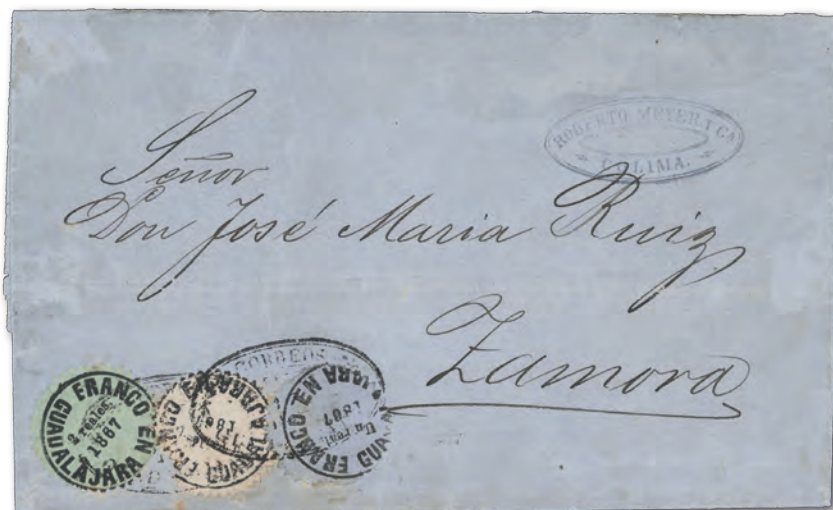 ROBERTO MEYER Y CA
COLIMA.
Señor
Don José Maria Ruiz
Zamora
CORREOS
FRANCO EN GUADALAJARA
2 reales
1867
FRANCO EN GUADALAJARA
Un real
FRANCO EN GUADALAJARA
Un real
1867